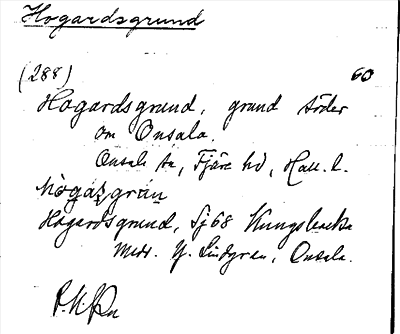 Hogardsgrund
(288) 60
Hogardsgrund, grund söder
om Onsala.
Onsala sn, Fjäre hd, Hall. l.
Hogardsgrund, Sj 68 Kungsbacka
Medd. Lindgren, Onsala.